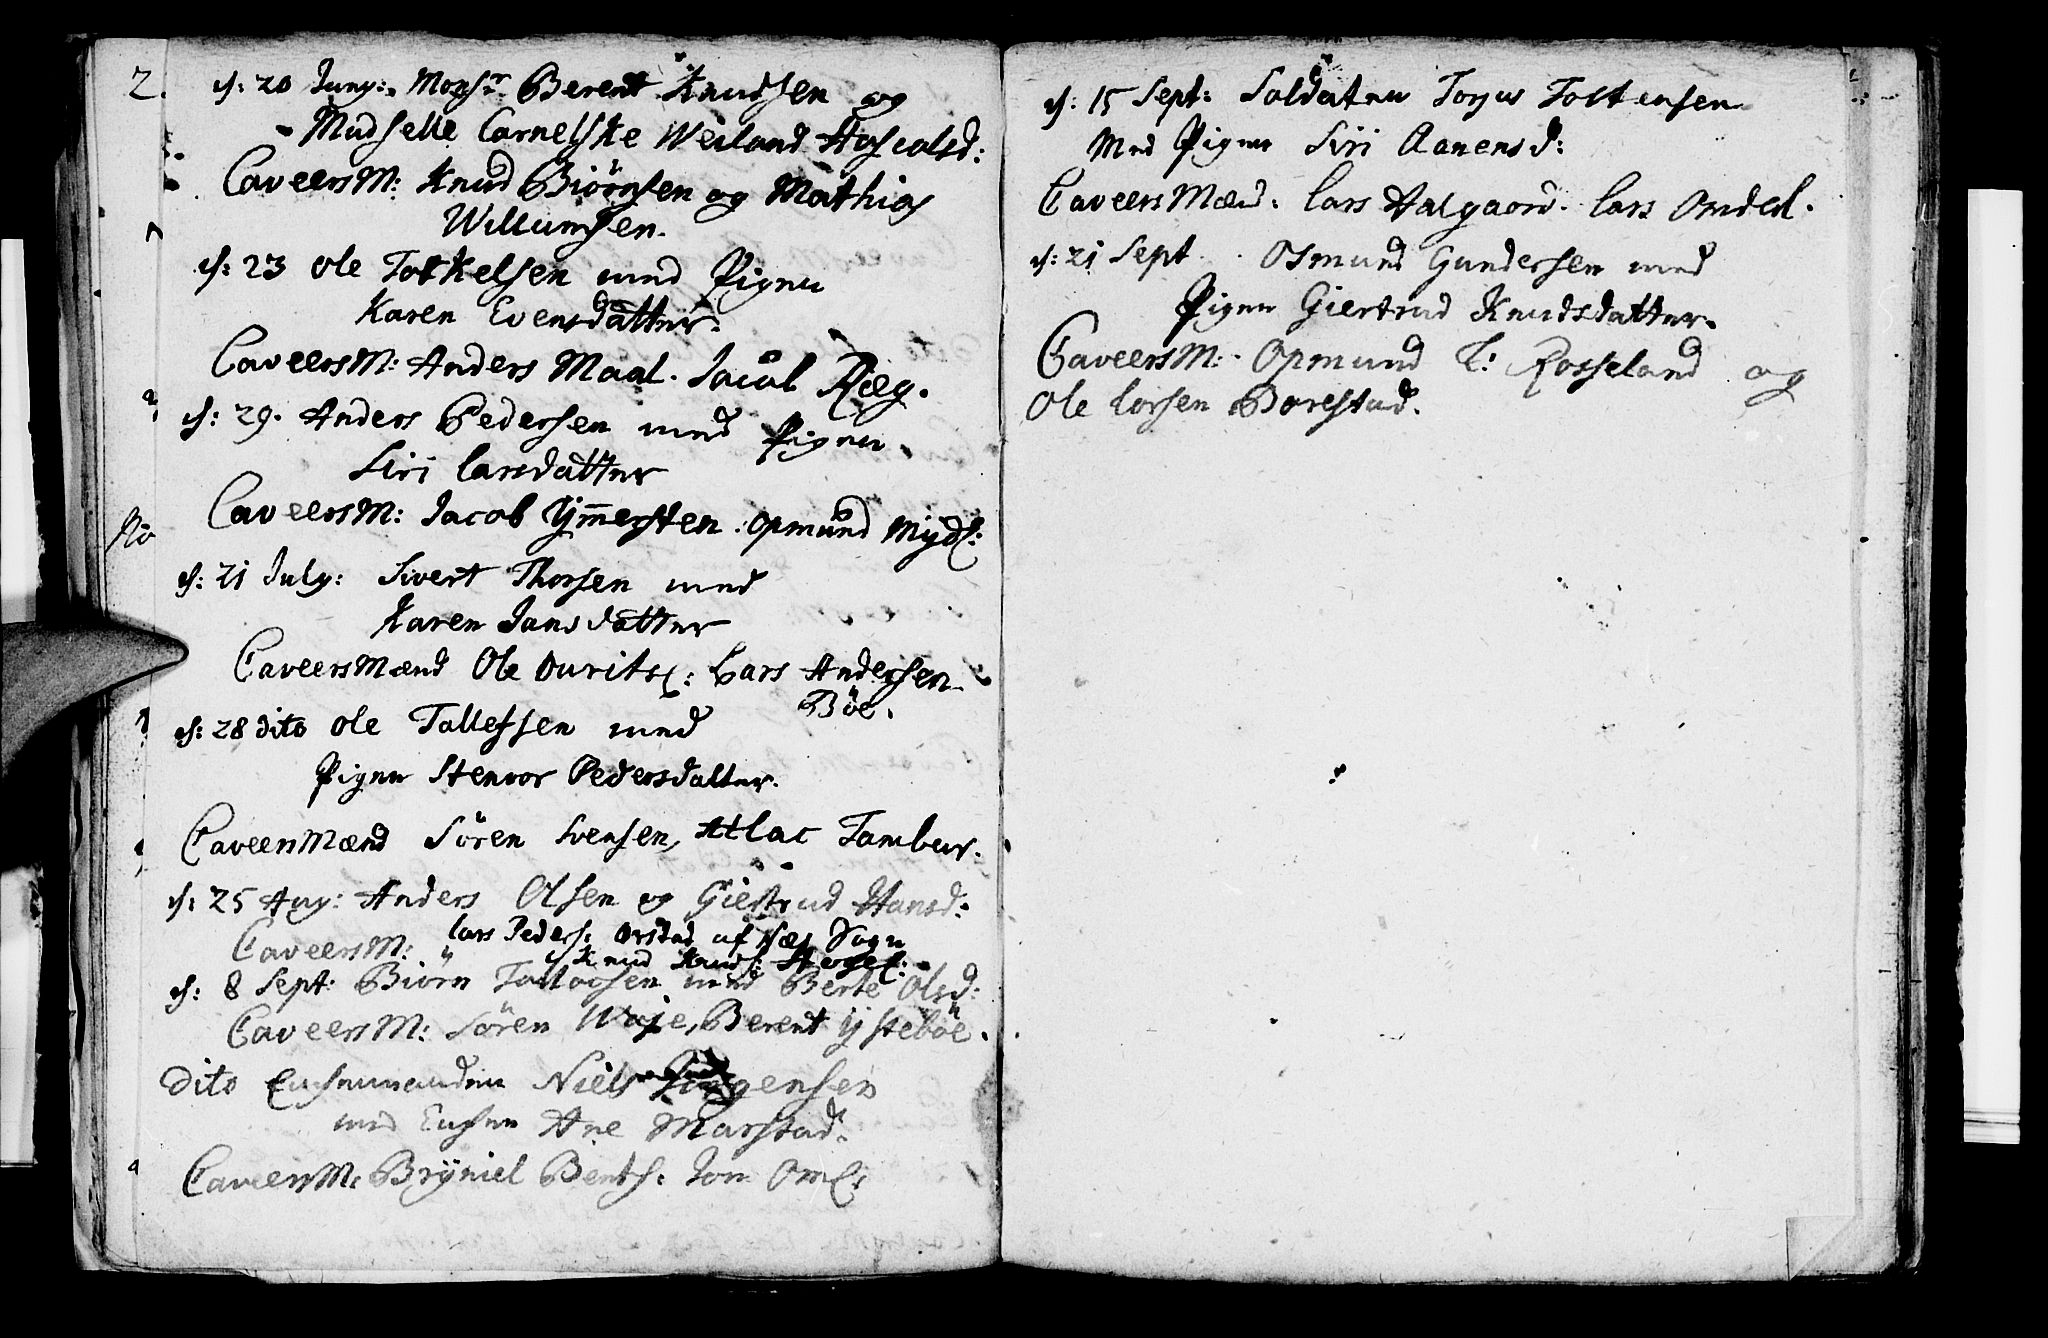 2. d: 20 Juny: Monsr Berent Knudsen og
Madselle Carnelske Weiland Hoscolsd:
CaveersM: Knud Biörnsen og Mathias
Willumsen.
d: 23 Ole Torkelsen med Pigen
Karen Evensdatter.
CaveersM: Anders Maal. Jacob Ræg.
d: 29. Anders Pedersen med Pigen
Siri Larsdatter
CaveersM: Jacob Ymersten. Opmund Mydl:
d: 21 July: Sivert Thorsen med
Karen Jansdatter
CaveersMænd Ole Ouritz: Lars Andersen
Böe.
d: 28 dito Ole Tollefsen med
Pigen Stenvor Pedersdatter.
CaveersMænd Sören Svensen, Atlac Tambur.
d: 25 Aug: Anders Olsen og Giertrud Hansd:
CaveersM: Lars Peders: Orstad af Næs Sogn
Knud Knuds:
d: 8 Sept: Biörn Tollagsen med Berte Olsd:
CaveersM: Sören Waje, Berent Ysteböe.
Dito Enchemanden Niels Jürgensen
med Enchen Ane Marstad.
CaveersM: Bryniel Bents: Jon
d: 15 Sept: Soldaten Torjus Tostensen
Med Pigen Siri Aanensd:
CaveersMænd. Lars Aalgaard. Lars Omdal.
d: 21 Sept. Osmund Gundersen med
Pigen Giertrud Knudsdatter.
CaveersM: Opmund T: Rosseland og
Ole Larsen Borestad.